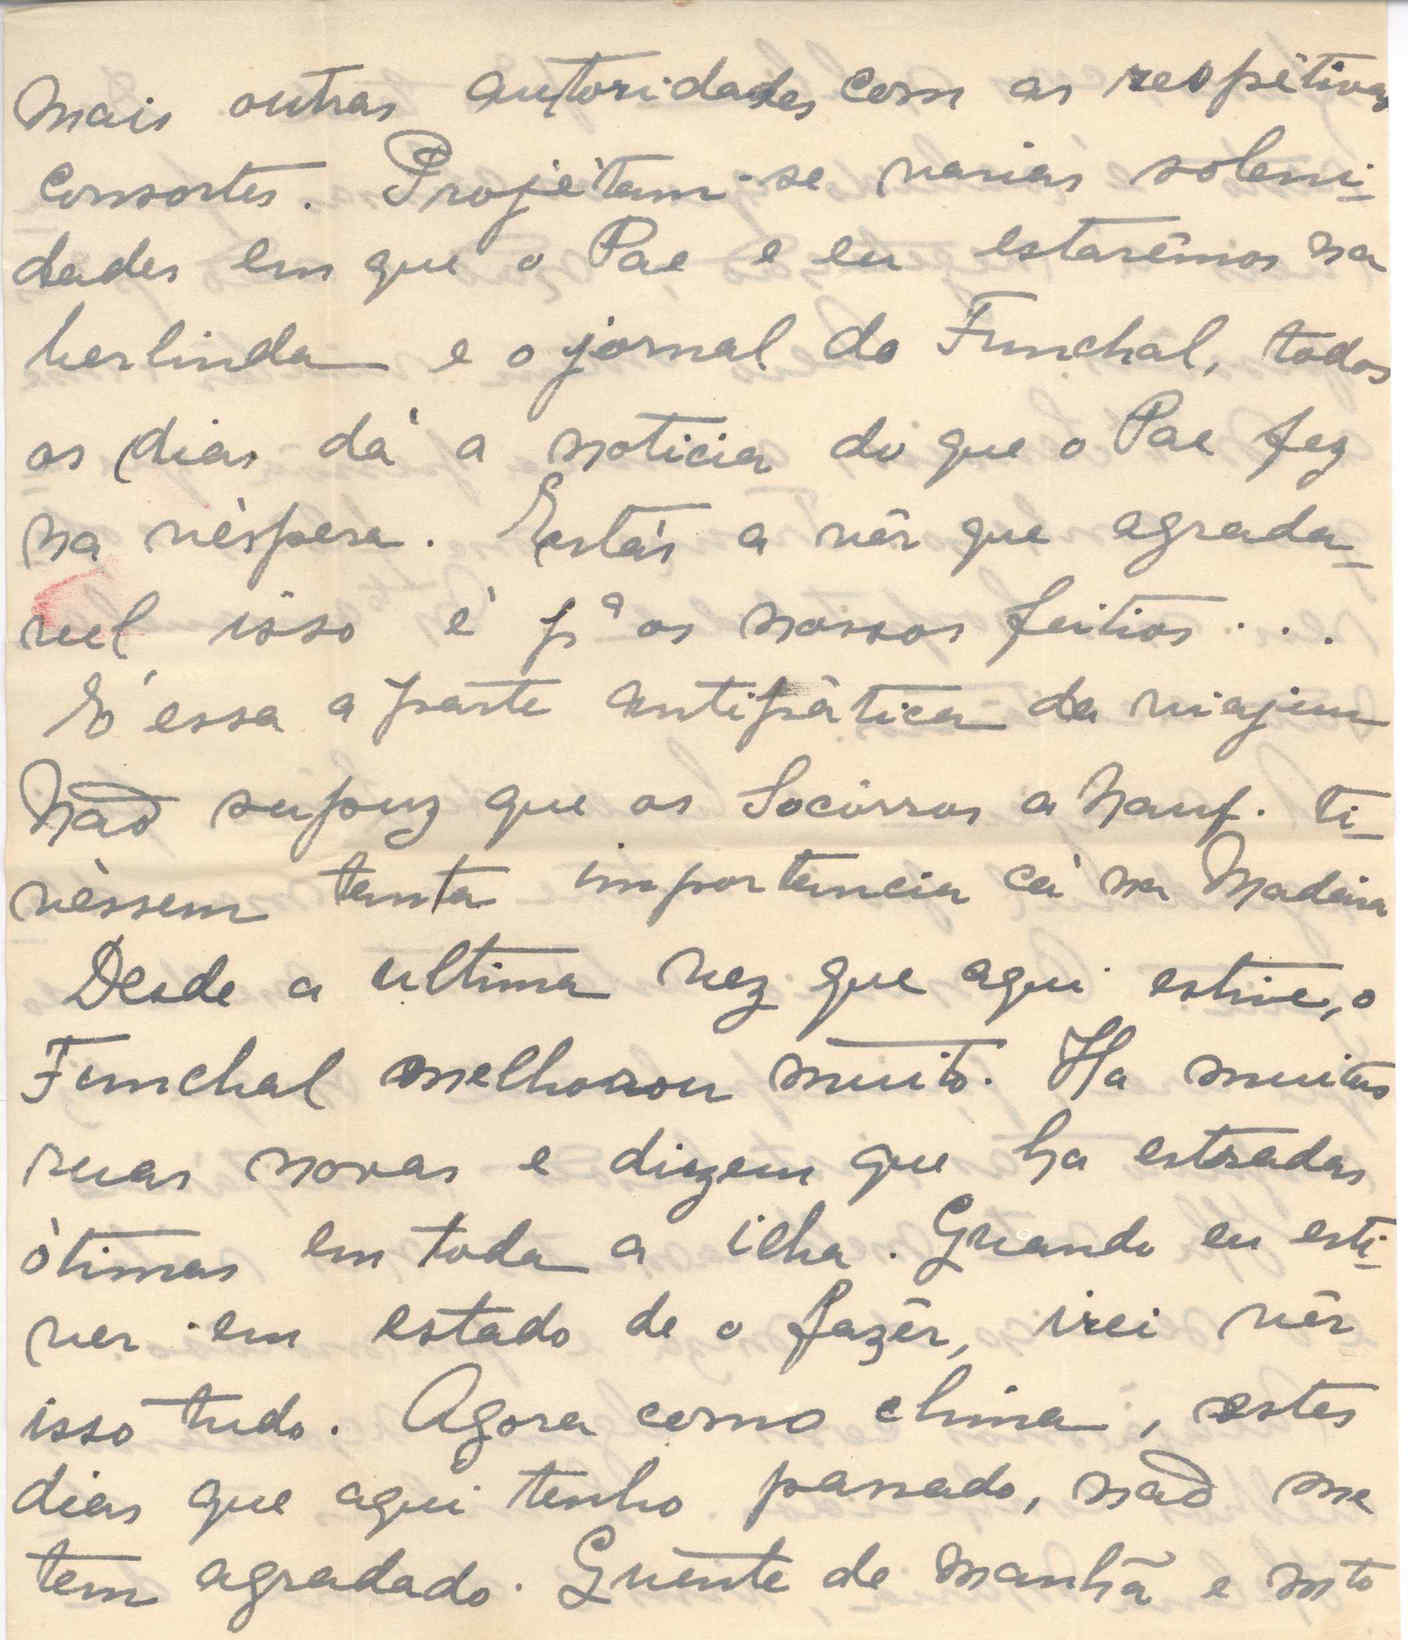 mais outras autoridades com as respétivas
consortes. Projétam-se varias soleni-
dades em que o Pae e eu estarêmos na
berlinda e o jornal do Funchal, todos
os dias dá a noticia do que o Pae fez
na véspera. Estás a vêr que agrada-
vel isso é pª os nossos feitios...
E' essa a parte antipática da viajem
Não supuz que os Socórros a Nauf. ti-
véssem tanta importancia cá na Madeira
Desde a ultima vez que aqui estive, o
Funchal melhorou muito. Ha muitas
ruas novas e dizem que ha estradas
ótimas em toda a ilha. Quando eu esti-
ver em estado de o fazêr, irei vêr
isso tudo. Agora como clima, estes
dias que aqui tenho passado, não me
tem agradado. Quente de manhã e mto